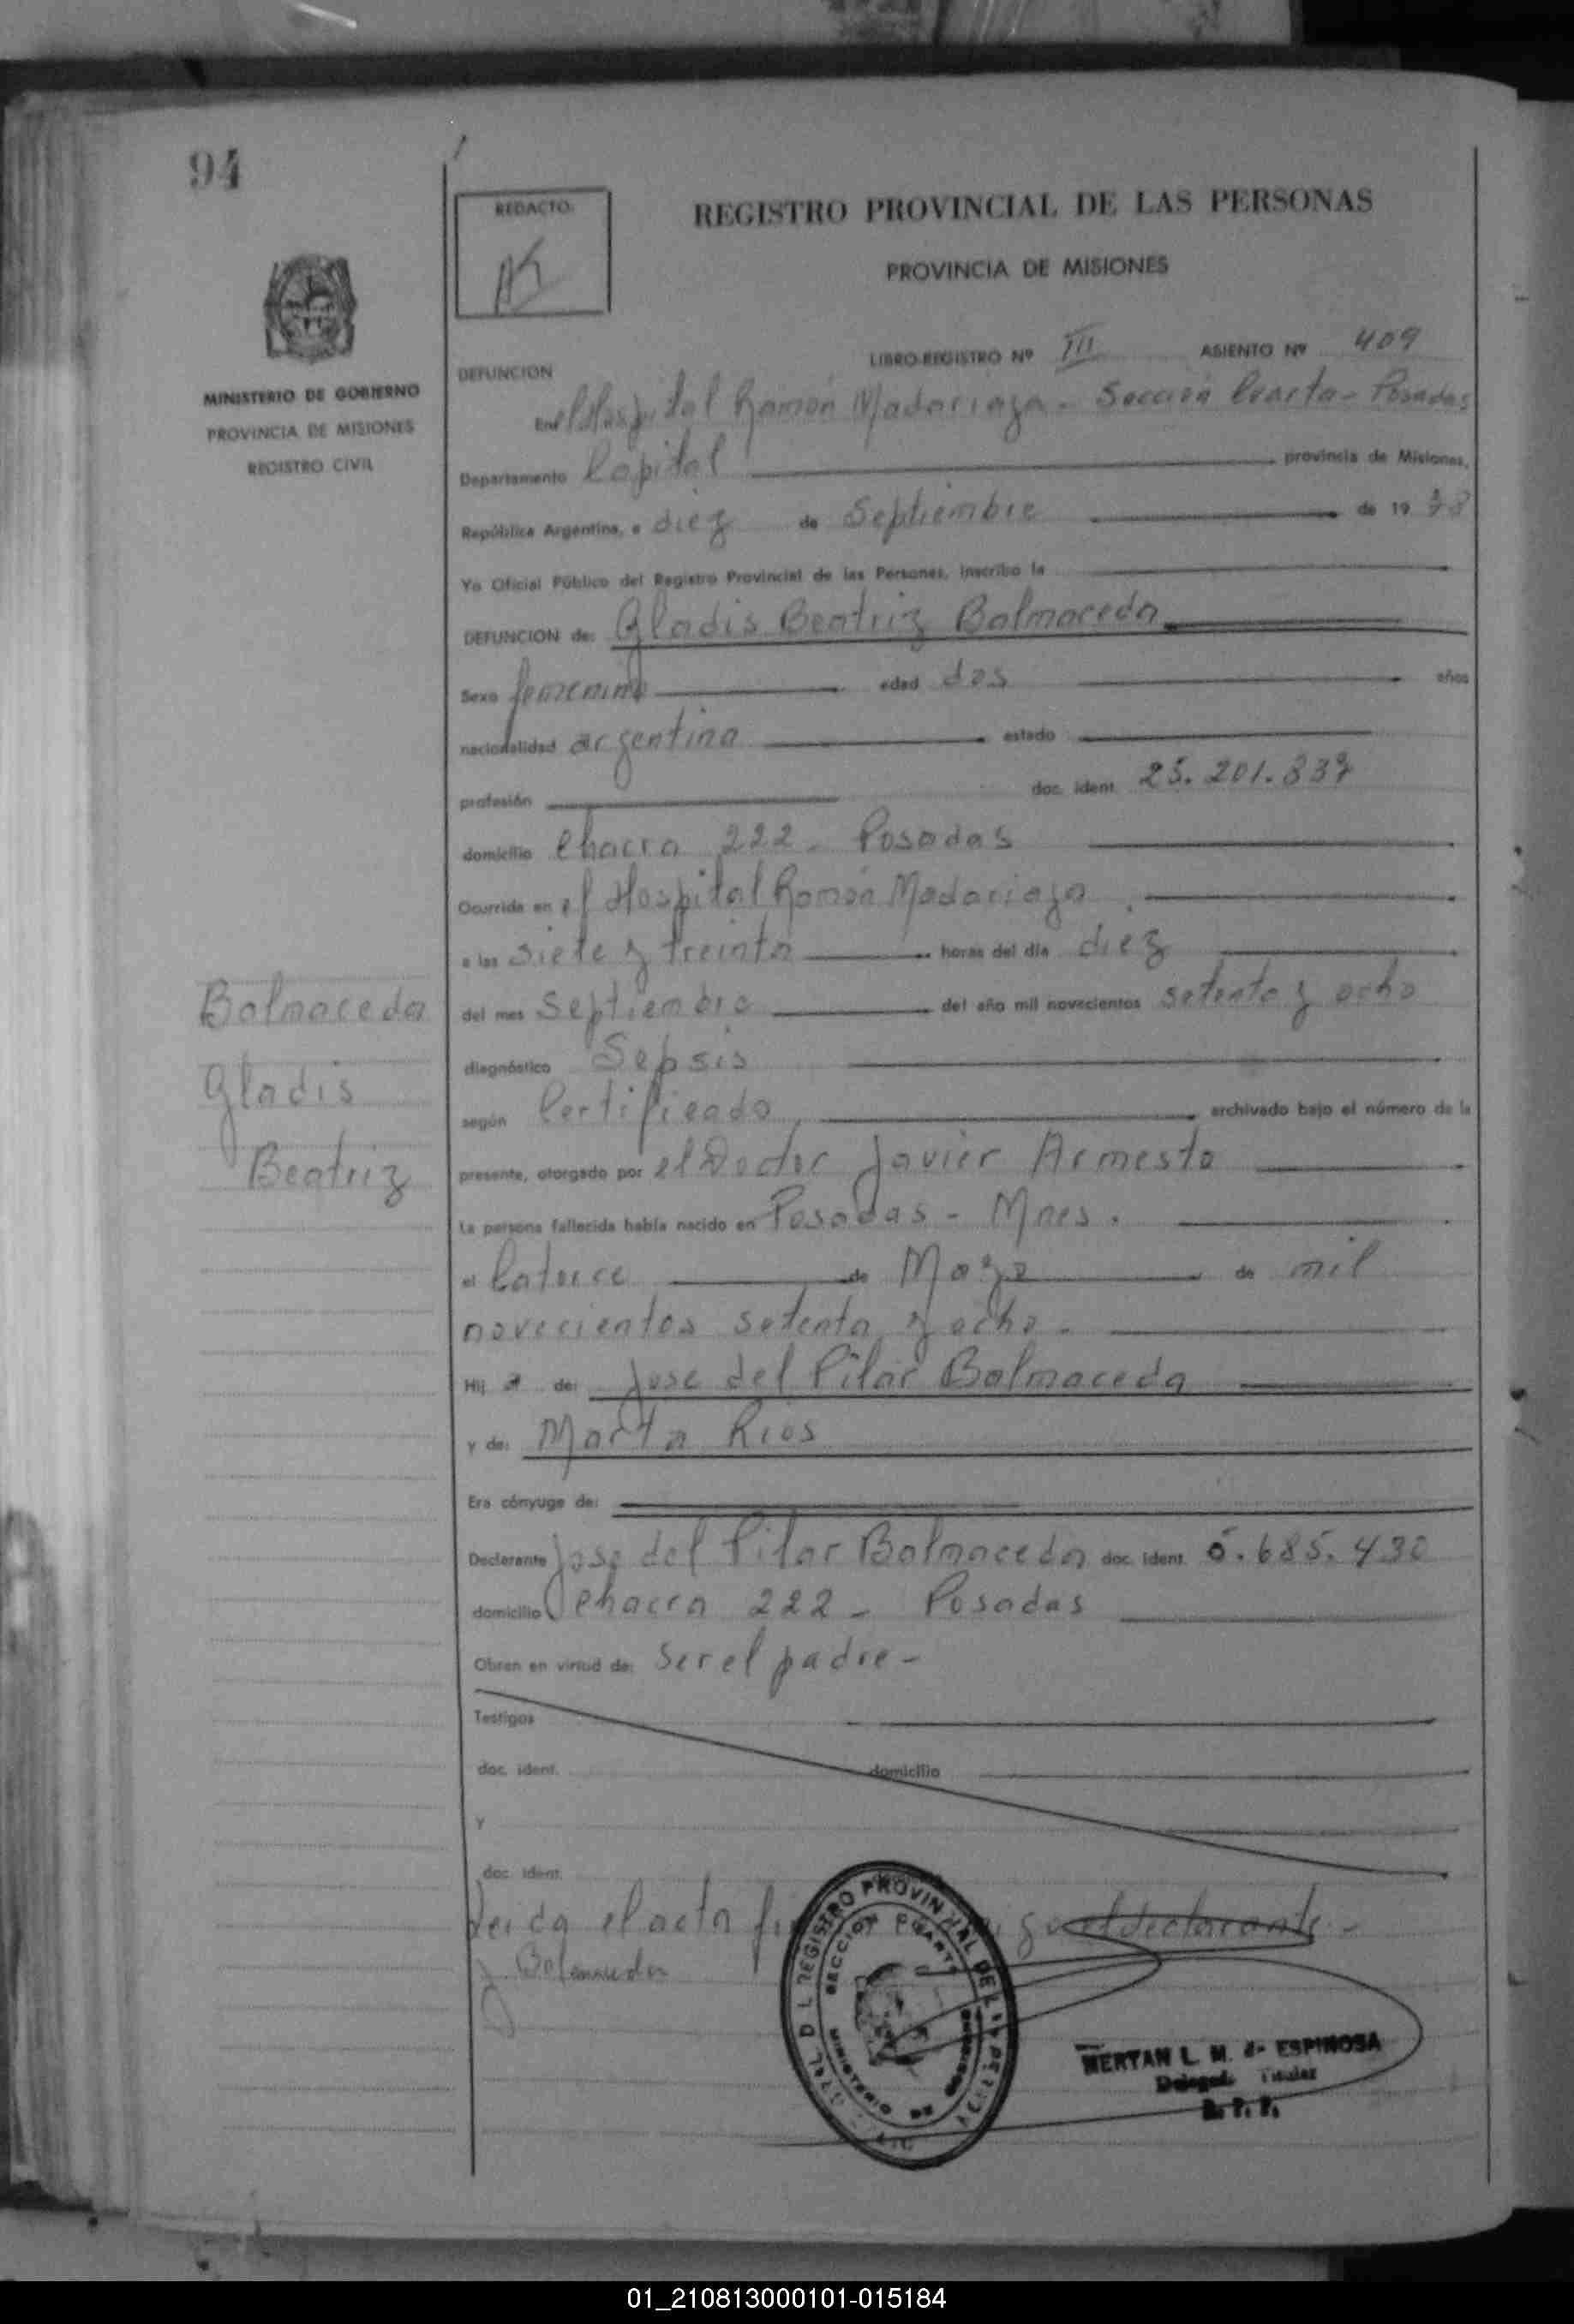 94
REDACTO:
REGISTRO PROVINCIAL DE LAS PERSONAS
PROVINCIA DE MISIONES
MINISTERIO DE GOBIERNO
PROVINCIA DE MISIONES
REGISTRO CIVIL
LIBRO-REGISTRO Nº III ASIENTO Nº 409
DEFUNCION
En el Hospital Ramón Madariaga - Sección Cuarta - Posadas
Departamento Capital provincia de Misiones,
República Argentina, a diez de Septiembre de 19 78
Yo Oficial Público del Registro Provincial de las Personas, inscribo la
DEFUNCION de: Gladis Beatriz Balmaceda
Sexo femenino edad dos años
nacionalidad argentina estado
profesión doc. ident. 25.201.837
domicilio Chacra 222 - Posadas
Ocurrida en el Hospital Ramón Madariaga
a las siete y treinta horas del día diez
del mes Septiembre del año mil novecientos setenta y ocho
diagnóstico Sepsis
según Certificado archivado bajo el número de la
presente, otorgado por el Doctor Javier Armesto
La persona fallecida había nacido en Posadas - Mnes.
el Catorce de Mayo de mil
novecientos setenta y ocho -
Hij a de: Jose del Pilar Balmaceda
y de: Marta Rios
Era cónyuge de:
Declarante Jose del Pilar Balmaceda doc. ident. 5.685.430
domicilio Chacra 222 - Posadas
Obran en virtud de: ser el padre -
Testigos
doc. ident. domicilio
y
doc. ident.
Leida el acta el declarante -
J. Balmaceda
Balmaceda
Gladis
Beatriz
REGISTRO PROVINCIAL DE LAS
SECCION CUARTA
MINISTERIO DE GOBIERNO
MERTAN L. M. de ESPINOSA
Delegada Titular
R. P. P.
01_210813000101-015184